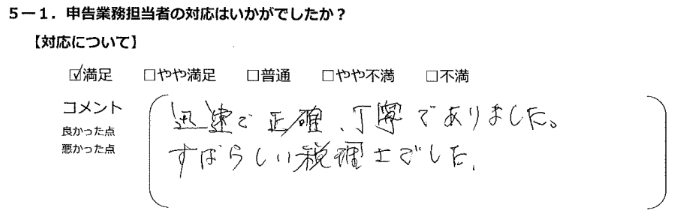 ５－１．申告業務担当者の対応はいかがでしたか？
【対応について】
☑満足 □やや満足 □普通 □やや不満 □不満
コメント
良かった点
悪かった点
迅速で正確、丁寧でありました。
すばらしい税理士でした。